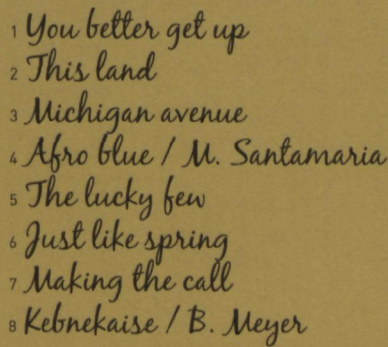 1 You better get up
2 This land
3 Michigan avenue
4 Afro blue / M. Santamaria
5 The lucky few
6 Just like spring
7 Making the call
8 Kebnekaise / B. Meyer